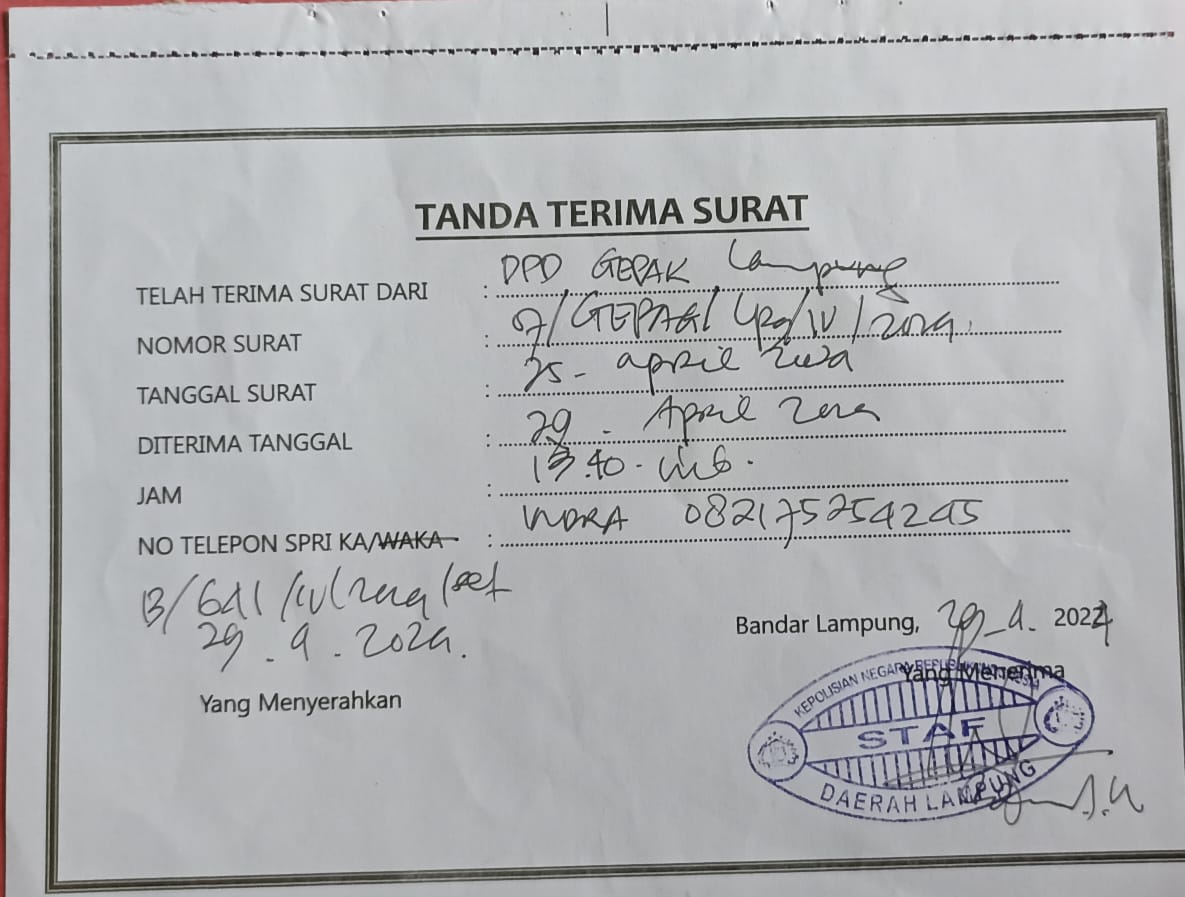 TANDA TERIMA SURAT
TELAH TERIMA SURAT DARI : DPD GEPAK Lampung
NOMOR SURAT : 07/GEPAK/Lpg/IV/2024.
TANGGAL SURAT : 25 - april 2024
DITERIMA TANGGAL : 29 - April 2024
JAM : 13.40 - wib.
NO TELEPON SPRI KA/WAKA : INDRA 082175254245
B/641/IV/2024/set
29 - 4 - 2024.
Bandar Lampung, 29 - 4 - 2024
Yang Menyerahkan
Yang Menerima
KEPOLISIAN NEGARA REPUBLIK INDONESIA
STAF
DAERAH LAMPUNG